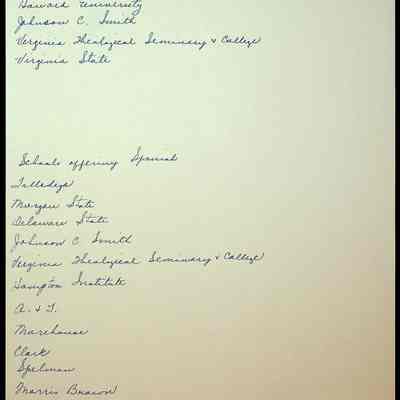 Howard University
Johnson C. Smith
Verginia Theological Seminary & College
Virginia State
Schools offering Spanish
Talledega
Morgan State
Delaware State
Johnson C. Smith
Verginia Theological Seminary & College
Hampton Institute
A. & T.
Morehouse
Clark
Spelman
Morris Brown